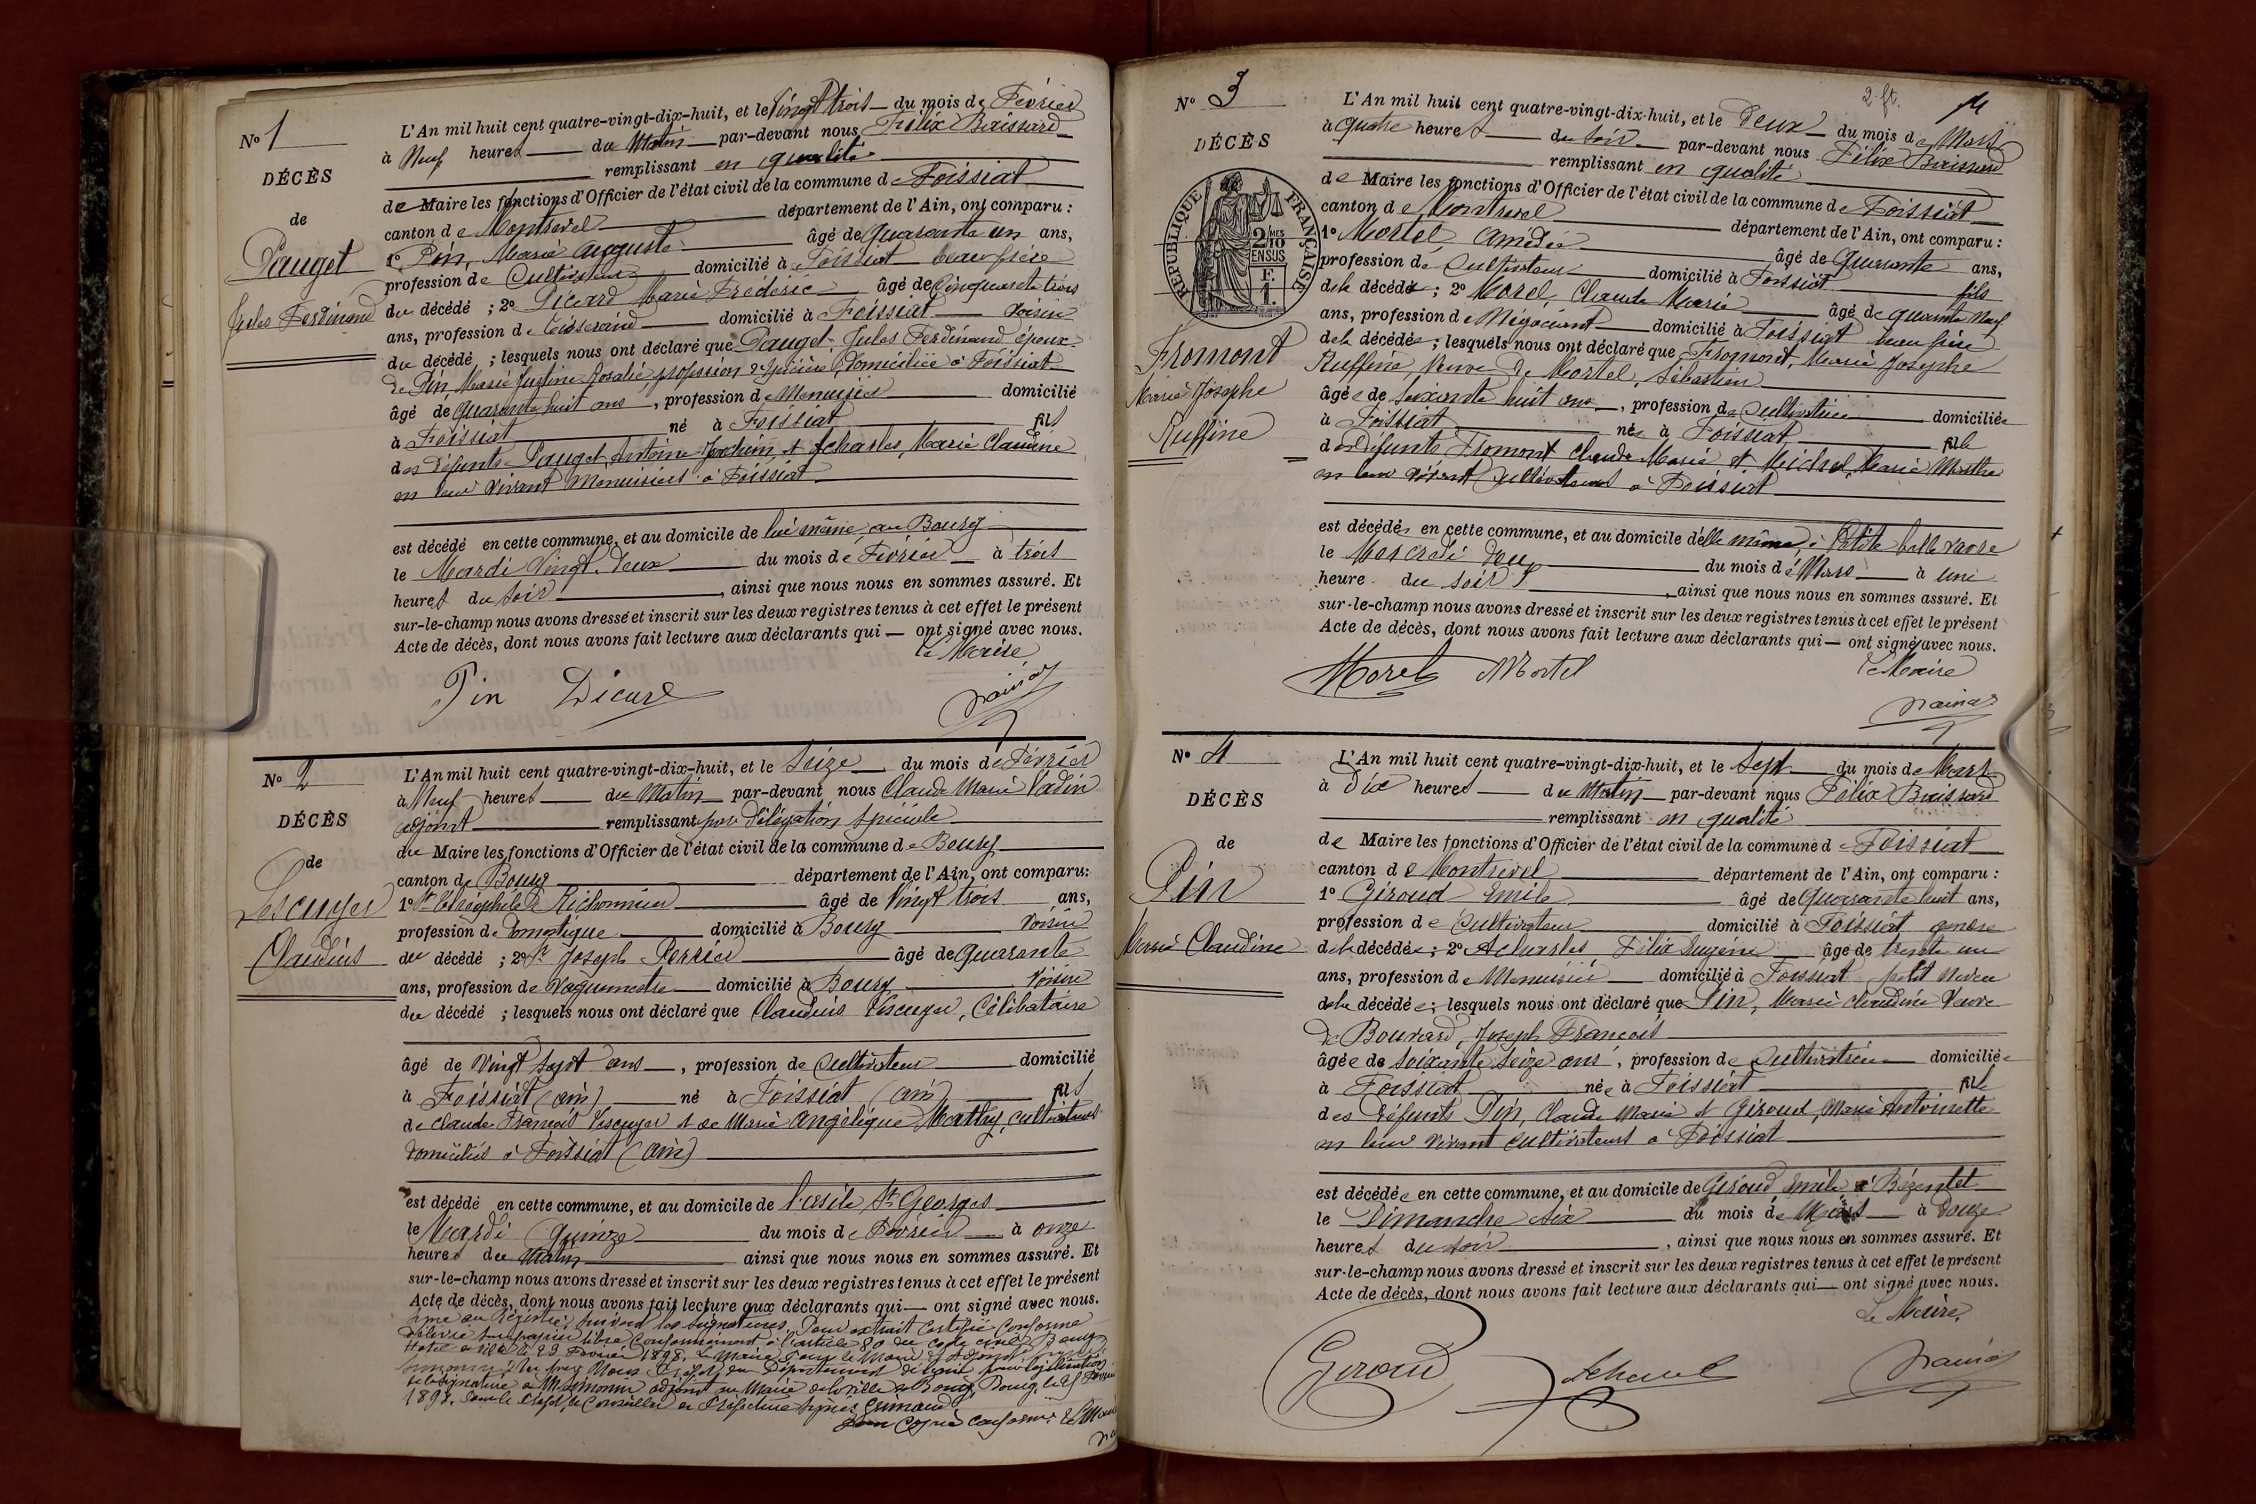 No 1
DÉCÈS
de
Pauget
Jules Ferdinand
L'An mil huit cent quatre-vingt-dix-huit, et le Vingt trois du mois de Février
à Neuf heures du Matin par-devant nous Félix Buissard
remplissant en qualité
de Maire les fonctions d'Officier de l'état civil de la commune de Foissiat
canton de Montrevel département de l'Ain, ont comparu :
1o Pin, Marie Auguste âgé de quarante un ans,
profession de Cultivateur domicilié à Foissiat beau frère
du décédé ; 2o Marie Frédéric âgé de Cinquante trois
ans, profession de Tisserand domicilié à Foissiat Voisin
du décédé ; lesquels nous ont déclaré que Pauget, Jules Ferdinand époux
de Pin, Marie Justine Rosalie profession d'épicière, Domiciliée à Foissiat
âgé de quarante huit ans, profession de Menuisier domicilié
à Foissiat né à Foissiat fils
des défunts Pauget, Antoine Joachim, et Acharles, Marie Claudine
en leur vivant Menuisiers à Foissiat
est décédé en cette commune, et au domicile de lui même au Bourg
le Mardi Vingt-deux du mois de Février à trois
heures du soir, ainsi que nous nous en sommes assuré. Et
sur-le-champ nous avons dressé et inscrit sur les deux registres tenus à cet effet le présent
Acte de décès, dont nous avons fait lecture aux déclarants qui — ont signé avec nous.
Le Maire
Pin
No 2
DÉCÈS
de
Lescuyer
Claudius
L'An mil huit cent quatre-vingt-dix-huit, et le Seize du mois de Février
à Neuf heures du Matin par-devant nous Claude Marie Vadin
adjoint remplissant par délégation spéciale
du Maire les fonctions d'Officier de l'état civil de la commune de Bourg
canton de Bourg département de l'Ain, ont comparu :
1o St Théophile Richonnier âgé de Vingt trois ans,
profession de Domestique domicilié à Bourg Voisin
du décédé ; 2o St Joseph Perrier âgé de quarante
ans, profession de Vaguemestre domicilié à Bourg Voisin
du décédé ; lesquels nous ont déclaré que Claudius Lescuyer, Célibataire
âgé de Vingt sept ans, profession de Cultivateur domicilié
à Foissiat (Ain) né à Foissiat (Ain) fils
de Claude François Lescuyer et de Marie Angélique Mathy, cultivateurs
domiciliés à Foissiat (Ain)
est décédé en cette commune, et au domicile de l'asile St Georges
le Mardi quinze du mois de Février à onze
heures du Matin ainsi que nous nous en sommes assuré. Et
sur-le-champ nous avons dressé et inscrit sur les deux registres tenus à cet effet le présent
Acte de décès, dont nous avons fait lecture aux déclarants qui — ont signé avec nous.
au Registre, suivent les signatures. Pour extrait Certifié Conforme
Délivré sur papier libre Conformément à l'article 80 du code civil Bourg
Hotel de ville le 23 Février 1898. Le Maire
légalisation
de la signature de Mr adjoint au Maire de la ville de Bourg, Bourg, le
1898, Pour le Préfet, le Conseiller de Préfecture
Pour Copie conforme Le Maire
2 ft.
No 3
DÉCÈS
RÉPUBLIQUE FRANÇAISE
2 MES
10
EN SUS
Fromont
Marie Josephe
Ruffine
L'An mil huit cent quatre-vingt-dix-huit, et le Deux du mois de Mars
à quatre heures du soir par-devant nous Félix Buissard
remplissant en qualité
de Maire les fonctions d'Officier de l'état civil de la commune de Foissiat
canton de Montrevel département de l'Ain, ont comparu :
1o Mortel, Amédée âgé de quarante ans,
profession de Cultivateur domicilié à Foissiat fils
de la décédée ; 2o Morel, Claude Marie âgé de quarante neuf
ans, profession de Négociant domicilié à Foissiat beau frère
de la décédée ; lesquels nous ont déclaré que Fromont, Marie Josephe
Ruffine, Veuve de Mortel, Sébastien
âgée de soixante huit ans, profession de Cultivatrice domiciliée
à Foissiat née à Foissiat fille
des défunts Fromont Claude Marie et Michel, Marie Marthe
en leur vivant Cultivateurs à Foissiat
est décédée en cette commune, et au domicile d'elle même, à Petite
le Mercredi deux du mois de Mars à une
heure du soir, ainsi que nous nous en sommes assuré. Et
sur-le-champ nous avons dressé et inscrit sur les deux registres tenus à cet effet le présent
Acte de décès, dont nous avons fait lecture aux déclarants qui — ont signé avec nous.
Morel Mortel
Le Maire
No 4
DÉCÈS
de
Pin
Marie Claudine
L'An mil huit cent quatre-vingt-dix-huit, et le Sept du mois de Mars
à Dix heures du Matin par-devant nous Félix Buissard
remplissant en qualité
de Maire les fonctions d'Officier de l'état civil de la commune de Foissiat
canton de Montrevel département de l'Ain, ont comparu :
1o Giroud Emile âgé de quarante huit ans,
profession de Cultivateur domicilié à Foissiat
de la décédée ; 2o Acharles Félix Eugène âgé de trente un
ans, profession de Menuisier domicilié à Foissiat petit neveu
de la décédée ; lesquels nous ont déclaré que Pin, Marie Claudine Veuve
de Bouvard, Joseph François
âgée de soixante seize ans, profession de Cultivatrice domiciliée
à Foissiat née à Foissiat fille
des défunts Pin, Claude Marie et Giroud, Marie Antoinette
en leur vivant cultivateurs à Foissiat
est décédée en cette commune, et au domicile de Giroud Emile à
le Dimanche six du mois de Mars à Douze
heures du soir, ainsi que nous nous en sommes assuré. Et
sur-le-champ nous avons dressé et inscrit sur les deux registres tenus à cet effet le présent
Acte de décès, dont nous avons fait lecture aux déclarants qui — ont signé avec nous.
Le Maire,
Giroud